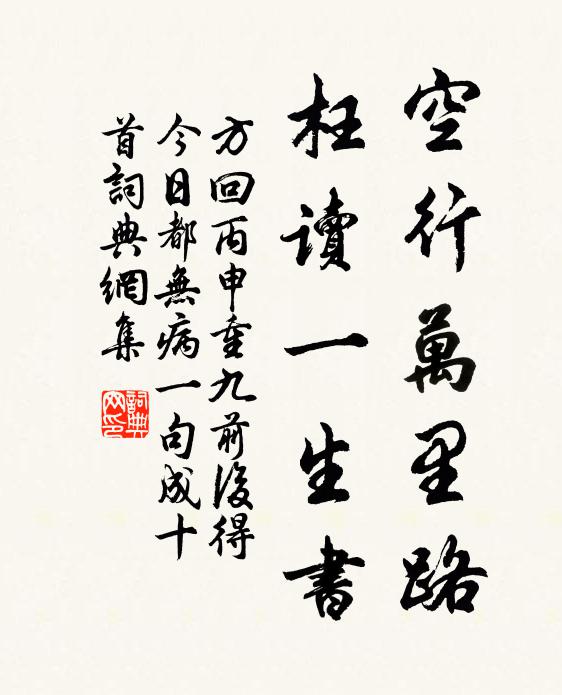 空行萬里路
枉讀一生書
方回丙申重九前後得
今日都無病一句成十
首詞典網集
詞典
网印